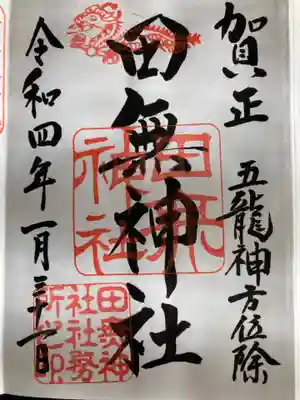 賀正
五龍神方位除
田無神社
田無神社
令和四年一月三十一日
田無神社社務所之印